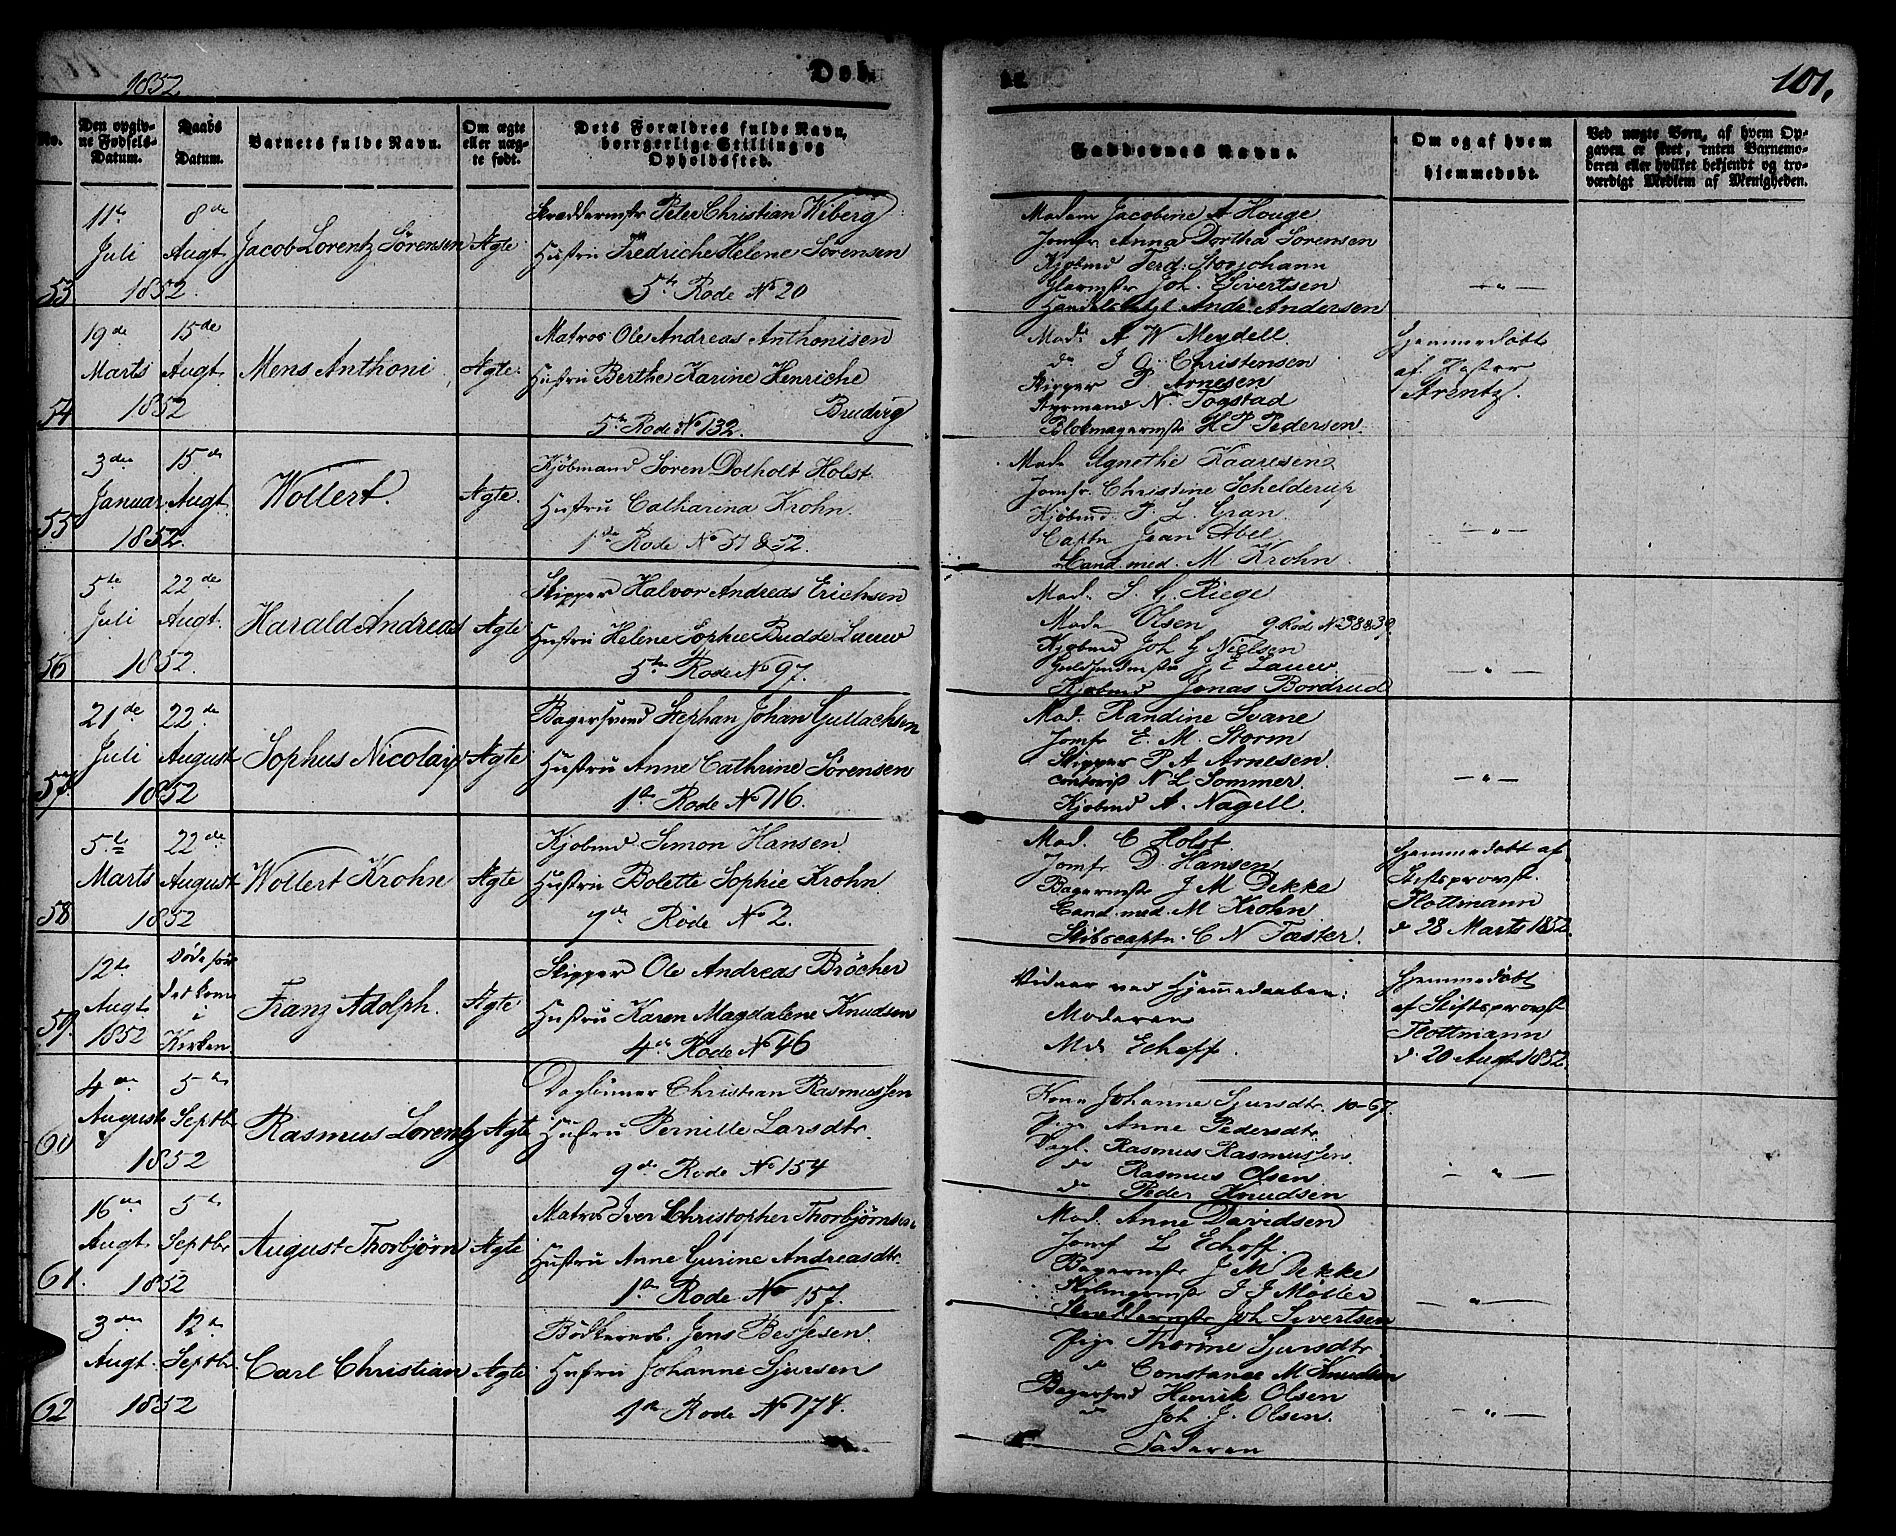 1852
Døb-
te.
101.
No.
Den opgiv-
ne Fødsels-
Datum.
Daabs
Datum.
Barnets fulde Navn.
Om ægte
eller uæg-
te født.
Dets Forældres fulde Navn,
borrgerlige Stilling og
Opholdssted.
Faddernes Navne.
Om og af hvem
hjemmedøbt.
Ved uægte Børn, af hvem Op-
gaven er skeet, enten Barnemo-
deren eller hvilket bekjendt og tro-
værdigt Medlem af Menigheden.
53
11te
Juli
1852.
8de
Augt
Jacob Lorentz Sørensen
Ægte
Skræddermstr Peter Christian Wiberg
Hustru Fredriche Helene Sørensen
5te Rode No 20
Madam Jacobine A Houge
Jomfr Anna Dortha Sorensen
Kjøbmd Ferd: Storjohann
Glarmstr Joh. Sivertsen
Andr. Andersen
— " —
54
19de
Marts
1852
15de
Augt
Mens Anthoni
Ægte.
Matros Ole Andreas Anthonisen
Hustru Berthe Karine Henriche
Bruderg
5te Rode No 132.
Mad: A W Meydell
do J G. Christensen
Skipper P. Arnesen
Styrmand N. Togstad
Blokmagermstr H P Pedersen
Hjemmedøbt
af Kster
Arentz.
55
3die
Januar
1852.
15de
Augt
Wollert
Ægte.
Kjøbmand Søren Dolholt Holst
Hustru Catharina Krohn.
1ste Rode No 51 & 52.
Mad. Agnethe Kaaresen
Jomfr. Christine Schelderup
Kjøbmd. P. L. Gran.
Captn Jean Abel
Cand. med. M Krohn.
— " —
56
5te
Juli
1852.
22de
Augt.
Harald Andreas
Ægte
Skipper Halvor Andreas Erichsen
Hustru Helene Sophie Budde Lauw
5te Rode No 97.
Mad. S. C. Riege
Mad. Olsen 9 Rode No 38 & 39.
Kjøbmd Joh G Nielsen
Guldsmedmstr J E Lauw
Kjøbmd Jonas Bordrud
— " —
57
21de
Juli
1852
22de
August
Sophus Nicolay
Ægte
Bagersvend Stephan Johan Gullachsen
Hustru Anne Cathrine Sørensen
1ste Rode No 116.
Mad. Randine Svane
Jomfr E. M Storm
Skipper P. A Arnesen.
N L Sommer.
Kjøbmd A. Nagell.
— " —
58
5te
Marts
1852
22de
August
Wollert Krohn
Ægte
Kjøbmd Simon Hansen.
Hustru Bolette Sophie Krohn
7de Rode No 2.
Mad. C Holst
Jomfr D. Hansen
Bagermstr J M Dekke
Cand. med. M Krohn
Skibscaptn. C N Tæster.
Hjemmedøbt af
Stiftsprovst.
Flottmann
d 28 Marts 1852
59.
12te
Augt
1852
Døde før
det kom
i
Kirken.
Franz Adolph.
Ægte
Skipper Ole Andreas Brôcher
Hustru Karen Magdalene Knudsen
4de Rode No 46
Vidner ved Hjemmedaaben:
Moderen
Md Echoff.
Hjemmedøbt
af Stiftsprovst
Flottmann
d. 20 Augt 1852
60
4de
August
1852
5te
Septbr
Rasmus Lorentz
Ægte
Daglønner Christian Rasmussen
Hustru Pernille Larsdtr.
9de Rode No 154
Kone Johanne Sjursdtr. 10-67.
Pige Anne Pedersdtr
Dagl. Rasmus Rasmussen.
do Rasmus Olsen
do Peder Knudsen
— " —
61.
16de
Augt.
1852
5te
Septbr
August Thorbjørn
Ægte
Matros Iver Christopher Thorbjørnsen
Hustru Anne Gurine Andreasdtr.
1ste Rode No 157.
Mad. Anne Davidsen
Jomf L Echoff.
Bagermstr J M Dekke
J J Møller
Skræddermstr Joh Sivertsen
— " —
62
3die
Augt.
1852
12te
Septbr
Carl Christian
Ægte
Bødkerarb. Jens Bessesen.
Hustru Johanne Sjursen
1ste Rode No 174.
Pige Thorine Sjursdtr
do Constance M. Knudsen
Bagersvd Henrik Olsen
do Joh J. Olsen.
Faderen
— " —